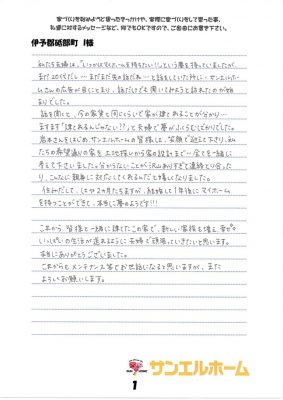 家づくりを始めようと思ったきっかけや、実際に家づくりをして思った事、
私達に対するメッセージなど、何でもOKですので、ご自由にお書き下さい。
伊予郡砥部町 I様
私たち夫婦は、"いつかはマイホームを持ちたい!!"という夢を持っていましたが、
まだ20代だし… まだまだ先の話だね…と話をしていた時に、サンエルホー
ムさんの広告が目にとまり、話だけでも聞いてみようと訪れたのが始
まりでした。
話を聞くと、今の家賃と同じくらいで家が建てれることが分かり…
ますます"建てれるんじゃない??"って夫婦で夢がふくらむばかりでした。
岩本さんをはじめ、サンエルホームの皆様は、笑顔で迎えて下さり、私た
ちの希望通りの家を土地探しから家の設計まで…全てを一緒に考
えて下さいました。分からないことがあれば連絡をとり合った
り、こんなに親身に対応してくれるんだと嬉しくなりました。
住みだして、1ヶ月たちますが、結婚して1年後にマイホーム
を持つことができて、本当に夢のようです!!!
これから 皆様と一緒に建てたこの家で、新しい家族も増え、幸せ
いっぱいの生活が送れるように夫婦で頑張っていきたいと思います。
本当にありがとうございました。
これからもメンテナンス等でお世話になると思いますが、また
よろしくお願いします。
サンエルホーム
1